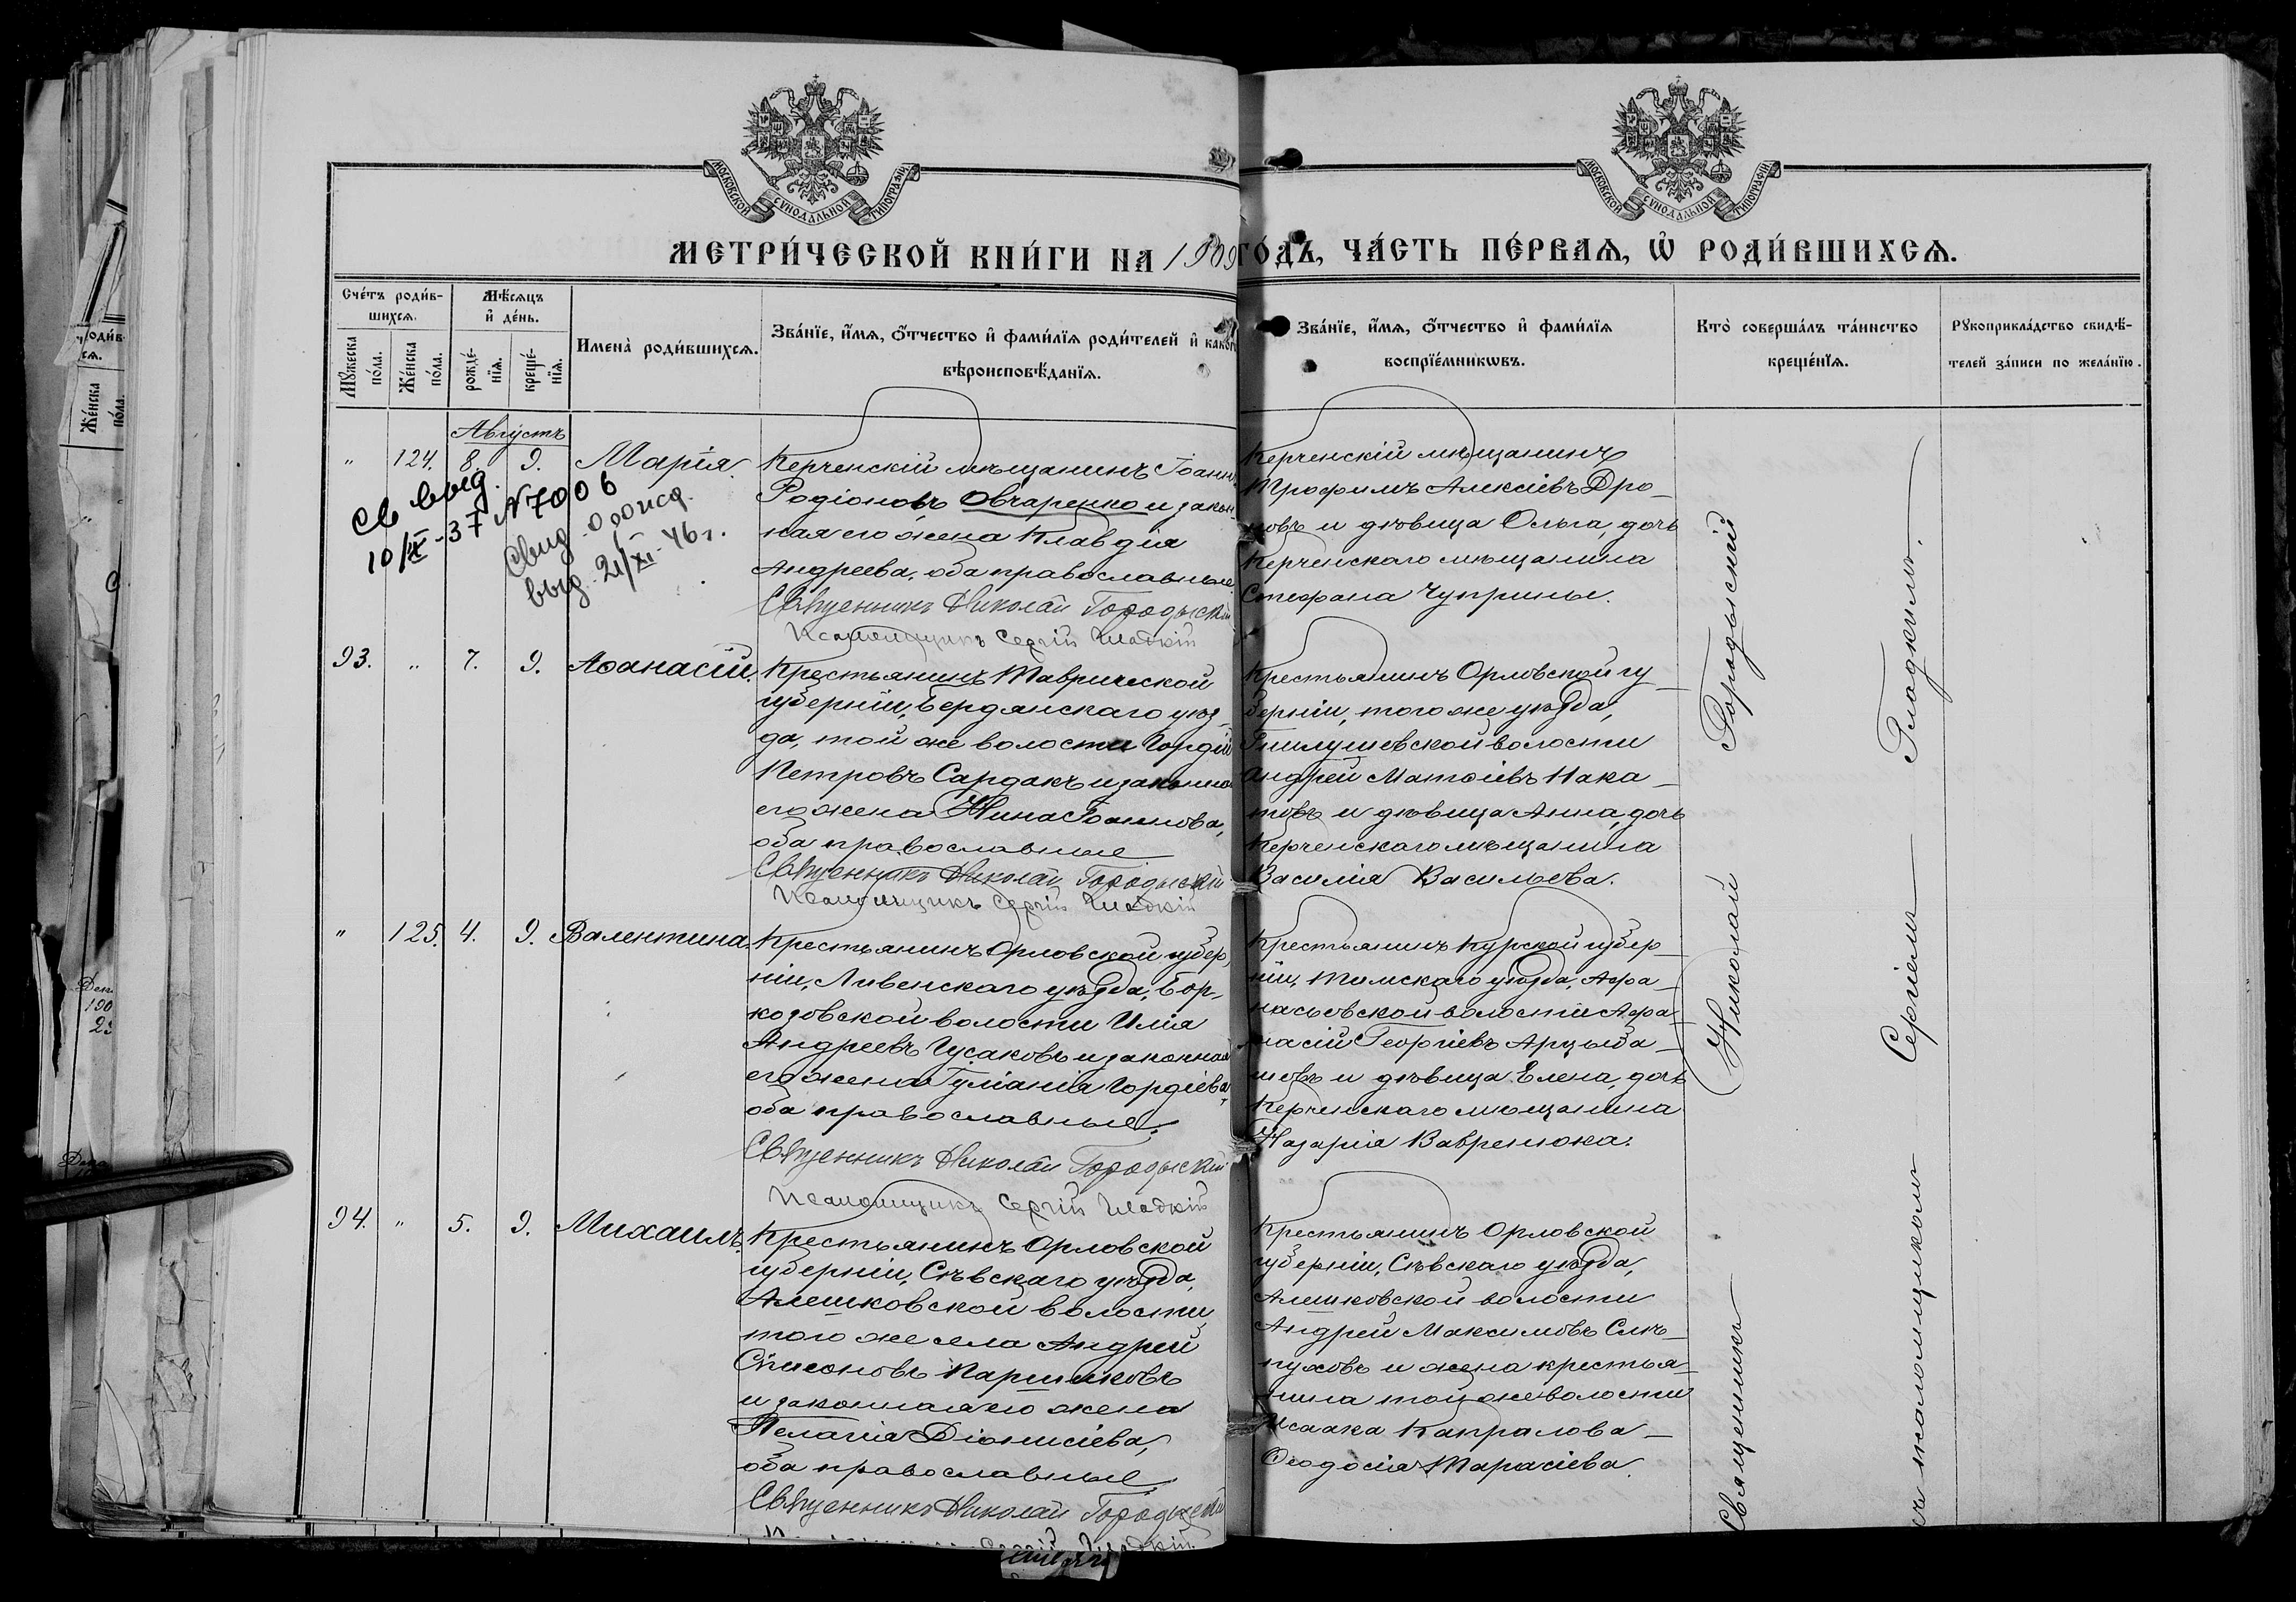 МОСКОВСКОЙ СѴНОДАЛЬНОЙ ТИПОГРАФІИ
МОСКОВСКОЙ СѴНОДАЛЬНОЙ ТИПОГРАФІИ
МЕТРИ́ЧЕСКОЙ КНИ́ГИ НА 1909 ГО́ДЪ, ЧА́СТЬ ПЕ́РВАѦ, Ѡ РОДИ́ВШИХСѦ.
Сче́тъ роди́в-
шихсѧ.
Мꙋ́жеска по́ла.
Же́нска по́ла.
Мѣ́сѧцъ
и҆ де́нь.
рожде́-
нїѧ.
креще́-
нїѧ.
Имена̀ роди́вшихсѧ.
Зва́нїе, и҆́мѧ, ѻ҆́тчество и҆ фами́лїѧ роди́телей и҆ како́гѡ
вѣроисповѣ́данїѧ.
Зва́нїе, и҆́мѧ, ѻ҆́тчество и҆ фами́лїѧ
воспрїе́мникѡвъ.
Кто̀ соверша́лъ та́инство
креще́нїѧ.
Рꙋкоприкла́дство свидѣ́-
телей за́писи по жела́нїю.
Августъ
" 124. 8. 9. Марія.
Керченскій мѣщанинъ Іоаннъ
Родіоновъ Овчаренко и закон-
ная его жена Клавдія
Андреева, оба православные
Священникъ Николай Городыскій
Псаломщикъ Сергій Гладкій
Керченскій мѣщанинъ
Трофимъ Алексіевъ Дро-
новъ и дѣвица Ольга, дочь
Керченскаго мѣщанина
Стефана Чуприны.
св выд.
10/IX-37 N7006
Свид.
выд. 21/XI-46 г.
93. " 7. 9. Аѳанасій.
Крестьянинъ Таврической
губерніи, Бердянскаго уѣз-
да, той же волости Гордій
Петровъ Сардакъ и законная
его жена Нина Іоаннова,
оба православные
Священникъ Николай Городыскій
Псаломщикъ Сергій Гладкій
Крестьянинъ Орловской гу-
берніи, того же уѣзда,
Гнилушевской волости
Андрей Матѳіевъ Нака-
товъ и дѣвица Анна, дочь
Керченскаго мѣщанина
Василія Васильева.
" 125. 4. 9. Валентина.
Крестьянинъ Орловской губер-
ніи, Ливенскаго уѣзда, Бор-
козовской волости Илія
Андреевъ Гусаковъ и законная
его жена Гуліанія Гордіева,
оба православные.
Священникъ Николай Городыскій
Псаломщикъ Сергій Гладкій
Крестьянинъ Курской губер-
ніи, Тимскаго уѣзда, Афа-
насьевской волости Афа-
насій Георгіевъ Арцыба-
шовъ и дѣвица Елена, дочь
Керченскаго мѣщанина
Назарія Вавренюка.
94. " 5. 9. Михаилъ.
Крестьянинъ Орловской
губерніи, Сѣвскаго уѣзда,
Алешковской волости,
того же села Андрей
Симеоновъ Паршиковъ
и законная его жена
Пелагія Діонисіева,
оба православные.
Священникъ Николай Городыскій
Крестьянинъ Орловской
губерніи, Сѣвскаго уѣзда,
Алешковской волости
Андрей Максимовъ Слѣ-
пуховъ и жена крестья-
нина той же волости
Исаака Капралова-
Ѳеодосія Тарасіева.
Священникъ Николай Городыскій
съ псаломщикомъ Сергіемъ Гладкимъ.